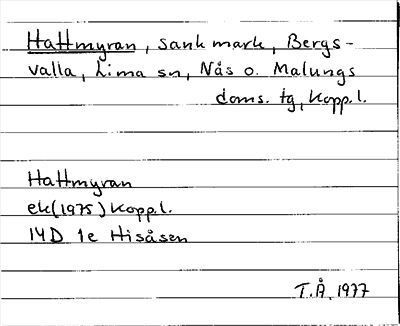 Hattmyran, sank mark, Bergs-
valla, Lima sn, Nås o. Malungs
doms. tg, Kopp.l.
Hattmyran
ek(1975) Kopp.l.
14D 1e Hisåsen
T.Å. 1977